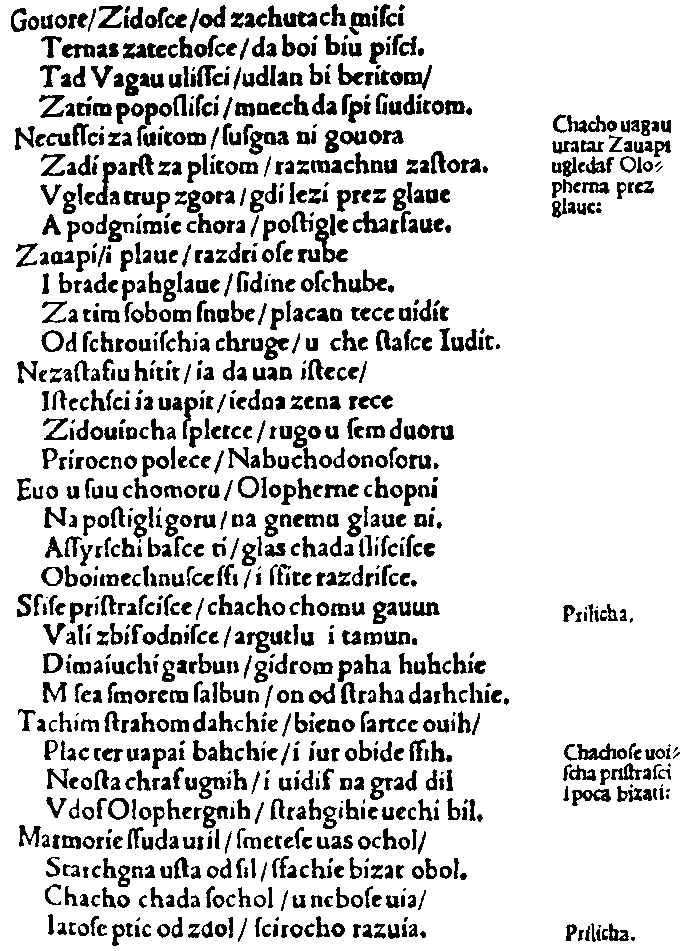 Gouore/Zidoſce/od zachutach miſci
Ternas zatechoſce/da boi biù piſci.
Tad Vagau uliſſci/udlan bi beritom/
Zatim popoſliſci/mnech da ſpi ſiuditom.
Necuſſci za ſuitom/ſuſgna ni gouora
Zadi parſt za plitom/razmachnu zaſtora.
Vgleda trup zgora/gdi lezi prez glaue
A podgnimie chora/poſtigle charſaue.
Zauapi/i plaue/razdri oſe rube
I brade pahglaue/ſidine oſchube.
Za tim ſobom ſnube/placan tece uidit
Od ſchrouiſchia chruge/u che ſtaſce Iudit.
Nezaſtaſiu hitit/ia da uan iſtece/
Iſtechſci ia uapit/iedna zena rece
Zidouincha ſpletce/rugo u ſem duoru
Prirocno polece/Nabuchodonoſoru.
Euo u ſuu chomoru/Olopherne chopni
Na poſtigli goru/na gnemu glaue ni.
Aſſyrſchi baſce ti/glas chada ſliſciſce
Oboimechnuſce ſſi/i ſſite razdriſce.
Sſiſe priſtraſciſce/chacho chomu gauun
Vali zbiſodniſce/argutlu i tamun.
Dimaiuchi garbun/gidrom paha huhchie
M ſea ſmorem ſalbun/on od ſtraha darhchie.
Tachim ſtrahom dahchie/bieno ſartce ouih/
Plac ter uapai bahchie/i iur obide ſſih.
Neoſta chraſ ugnih/i uidiſ na grad dil
VdoſOlophergnih/ſtrahgihie uechi bil.
Marmorie ſſuda uril/ſmeteſe uas ochol/
Starchgna uſta od ſil/ſſachie bizat obol.
Chacho chada ſochol/u neboſe uia/
Iatoſe ptic od zdol/ſcirocho razuia.
Chacho uagau
uratar Zauapi
ugledaſ Olo⸗
pherna prez
glaue:
Prilicha.
Chachoſe uoi⸗
ſcha priſtraſci
I poca bizati:
Prilicha.